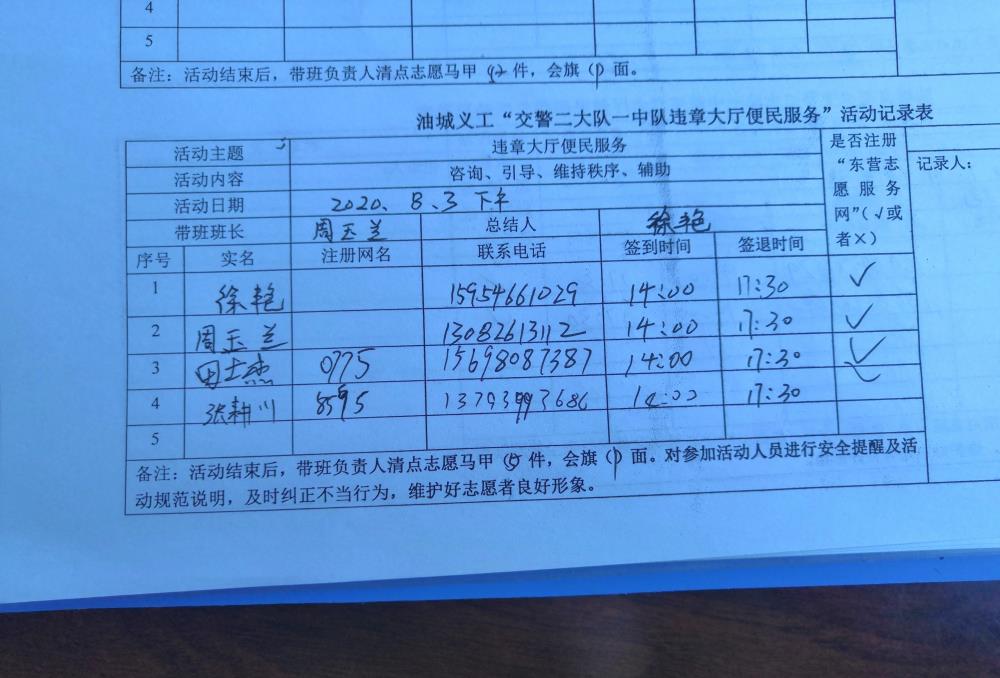 4
5
备注：活动结束后，带班负责人清点志愿马甲 件，会旗（1）面。
油城义工“交警二大队一中队违章大厅便民服务”活动记录表
活动主题 违章大厅便民服务 是否注册“东营志愿服务网”（√或者×） 记录人：
活动内容 咨询、引导、维持秩序、辅助
活动日期 2020、8、3 下午
带班班长 周玉兰 总结人 徐艳
序号 实名 注册网名 联系电话 签到时间 签退时间
1 徐艳 15954661029 14:00 17:30 ✓
2 周玉兰 13082613112 14:00 17:30 ✓
3 田士杰 0775 15698087387 14:00 17:30 ✓
4 张耕川 8595 13793993686 14:00 17:30 ✓
5
备注：活动结束后，带班负责人清点志愿马甲 件，会旗（1）面。对参加活动人员进行安全提醒及活
动规范说明，及时纠正不当行为，维护好志愿者良好形象。